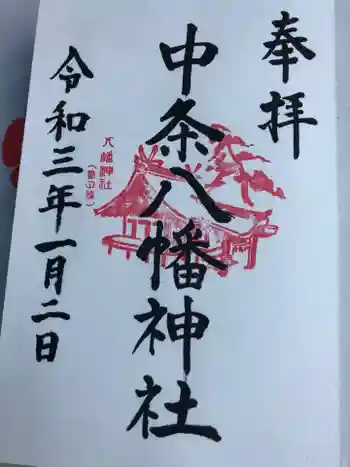 奉拝
中条八幡神社
八幡神社
令和三年一月二日